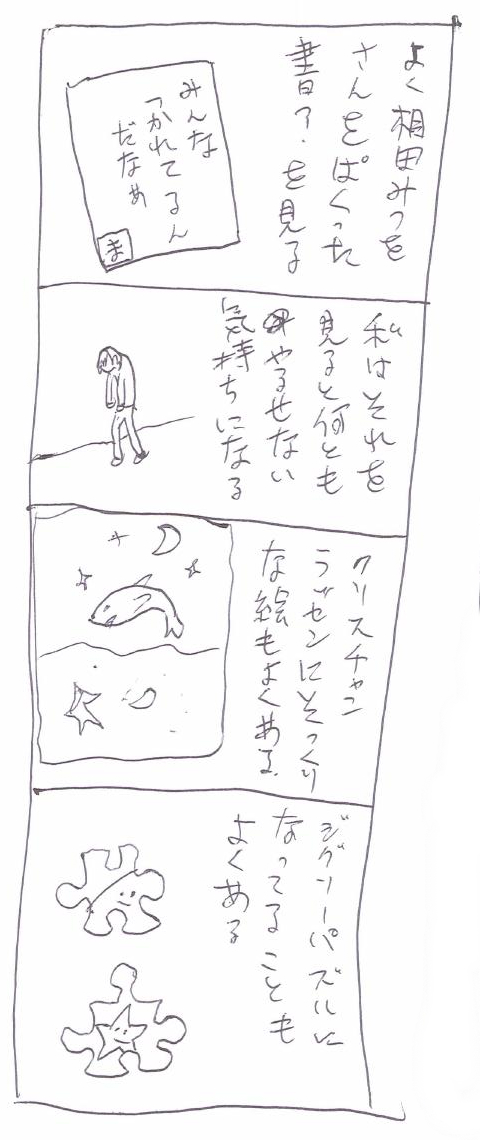 よく相田みつを
さんをぱくった
書?を見る
みんな
つかれてるん
だなあ
ま
私はそれを
見ると何とも
やるせない
気持ちになる
クリスチャン
ラッセンにそっくり
な絵もよくある
ジグソーパズルに
なってることも
よくある